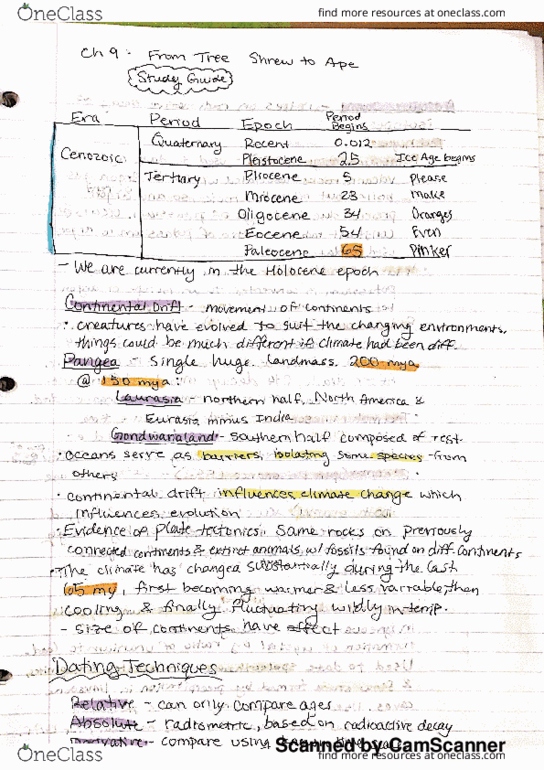 OneClass
find more resources at oneclass.com
Ch 9: From Tree Shrew to Ape
Study Guide
Era Period Epoch Period Begins
Cenozoic Quaternary Recent 0.012
Pleistocene 2.5 Ice Age begins
Tertiary Pliocene 5 Please
Miocene 23 Make
Oligocene 34 Oranges
Eocene 54 Even
Paleocene 65 Pinker
- We are currently in the Holocene epoch
Continental Drift - movement of continents
• creatures have evolved to suit the changing environments,
things could be much different if climate had been diff.
Pangea - Single huge landmass 200 mya
@ 150 mya:
Laurasia - northern half, North America &
Eurasia minus India
Gondwanaland - southern half composed of rest
• oceans serve as barriers, isolating some species from
others
• continental drift influences climate change which
influences evolution
• Evidence of Plate tectonics. Same rocks on previously
connected continents & extinct animals w/ fossils found on diff continents
• The climate has changed substantially during the last
65 my, first becoming warmer & less variable, then
cooling & finally fluctuating wildly in temp.
- size of continents have effect
Dating Techniques
Relative - can only compare ages
Absolute - radiometric, based on radioactive decay
Derivative - compare using
Scanned by CamScanner
OneClass
find more resources at oneclass.com